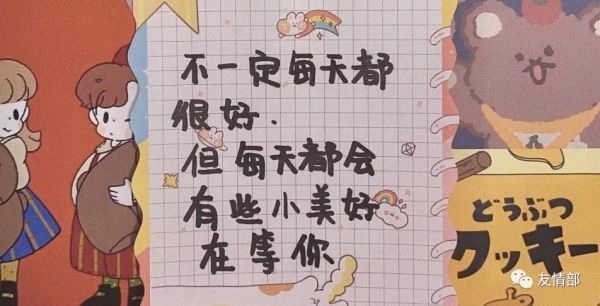 不一定每天都
很好.
但每天都会
有些小美好
在等你
どうぶつ
クッキー
友情部